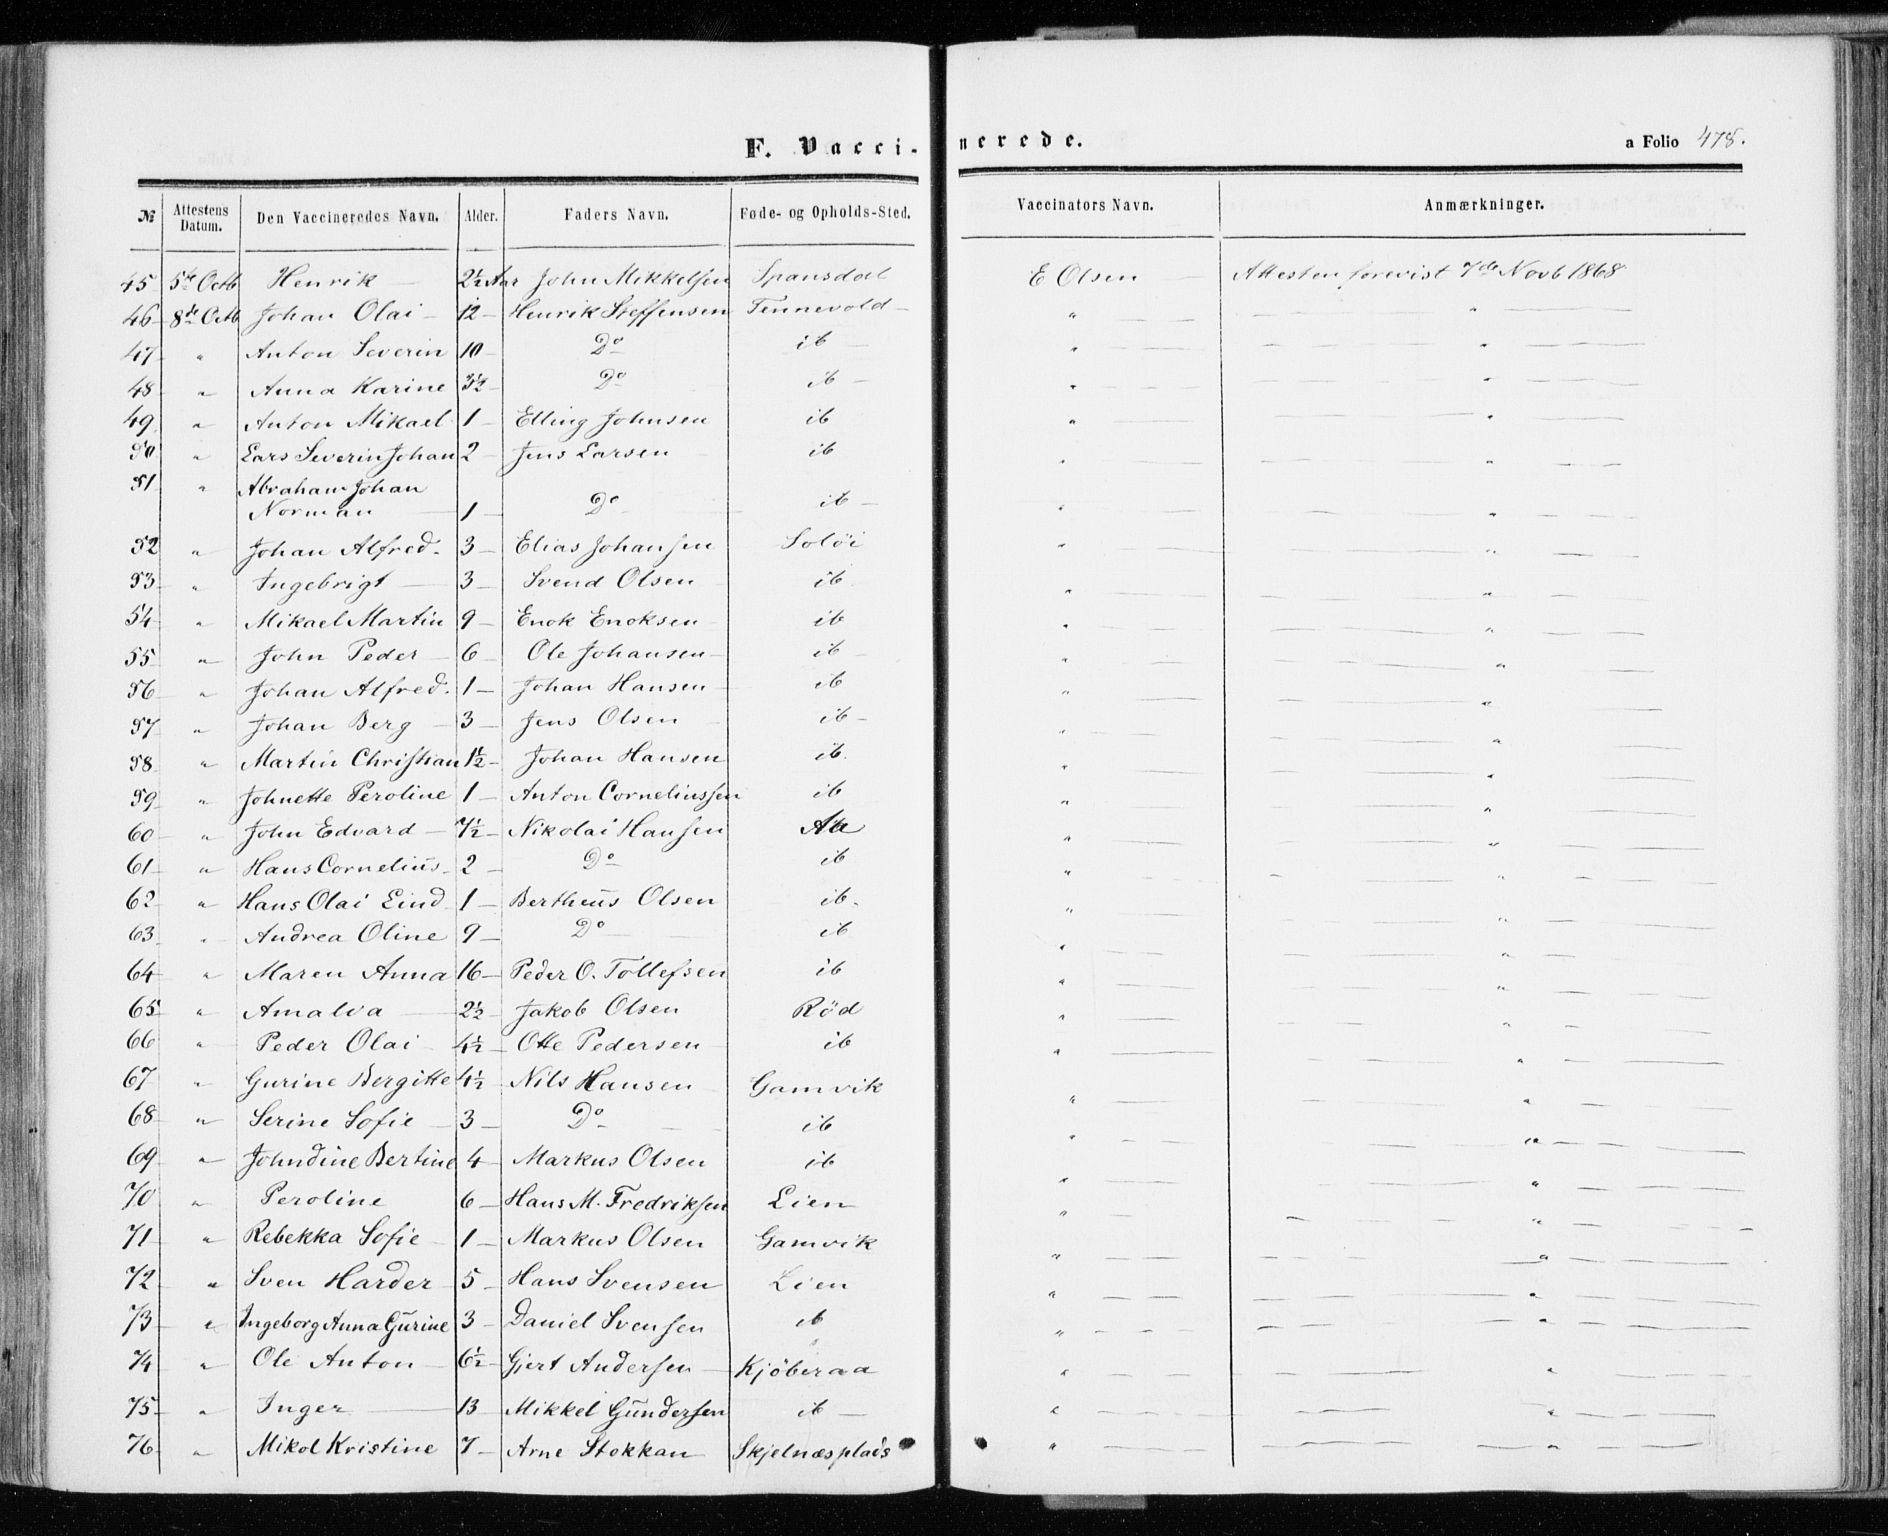 F. Vaccinerede.
a Folio 478.
№ Attestens Datum. Den Vaccineredes Navn. Alder. Faders Navn. Føde- og Opholds-Sted. Vaccinators Navn. Anmærkninger.
45 5te Octb Henrik — 2½ Aar John Mikkelsen Spansdal E Olsen — Attesten forevist 7de Novb 1868
46 8de Octb Johan Olai — 12 — Henrik Steffensen Tennevold — " — "
47 " Anton Severin 10 — Do ib — " — "
48 " Anna Karine 3½ — Do ib — " — "
49 " Anton Mikael 1 — Elling Johnsen ib " — "
50 " Lars Severin Johan 2 — Jens Larsen — ib " — "
51 " Abraham Johan
Norman — 1 — Do ib — " — "
52 " Johan Alfred. 3 — Elias Johansen Soløi " — "
53 " Ingebrigt — 3 — Svend Olsen ib " — "
54 " Mikael Martin 9 — Enok Enoksen ib " — "
55 " John Peder — 6 — Ole Johansen — ib — " — "
56 " Johan Alfred. 1 — Johan Hansen ib " — "
57 " Johan Berg — 3 — Jens Olsen ib — " — "
58 " Martin Christian 1½ — Johan Hansen ib. " — "
59 " Johnette Peroline 1 — Anton Corneliussen ib " — "
60 " John Edvard — 7½ — Nikolai Hansen Aa " — "
61 " Hans Cornelius 2 — Do ib " — "
62 " Hans Olai Lind 1 — Bertheus Olsen ib. " — "
63 " Andrea Oline 9 — Do ib " — "
64 " Maren Anna 16 — Peder O. Tollefsen ib " — "
65 " Amalva — 2½ — Jakob Olsen Rød " — "
66 " Peder Olai — 4½ — Otte Pedersen ib " — "
67 " Gurine Bergitte 4½ — Nils Hansen Gamvik " — "
68 " Serine Sofie — 3 — Do ib " — "
69 " Johndine Bertine 4 — Markus Olsen ib " — "
70 " Peroline 6 — Hans M. Fredriksen Lien " — "
71 " Rebekka Sofie 1 — Markus Olsen Gamvik " — "
72 " Sven Harder 5 — Hans Svensen Lien " — "
73 " Ingeborg Anna Gurine 3 — Daniel Svensen ib " — "
74 " Ole Anton — 6½ — Gjert Andersen — Kjøberaa " — "
75 " Inger — 13 — Mikkel Gundersen ib — " — "
76 " Mikol Kristine 7 — Arne Stokkan Skjelnæsplads " — "